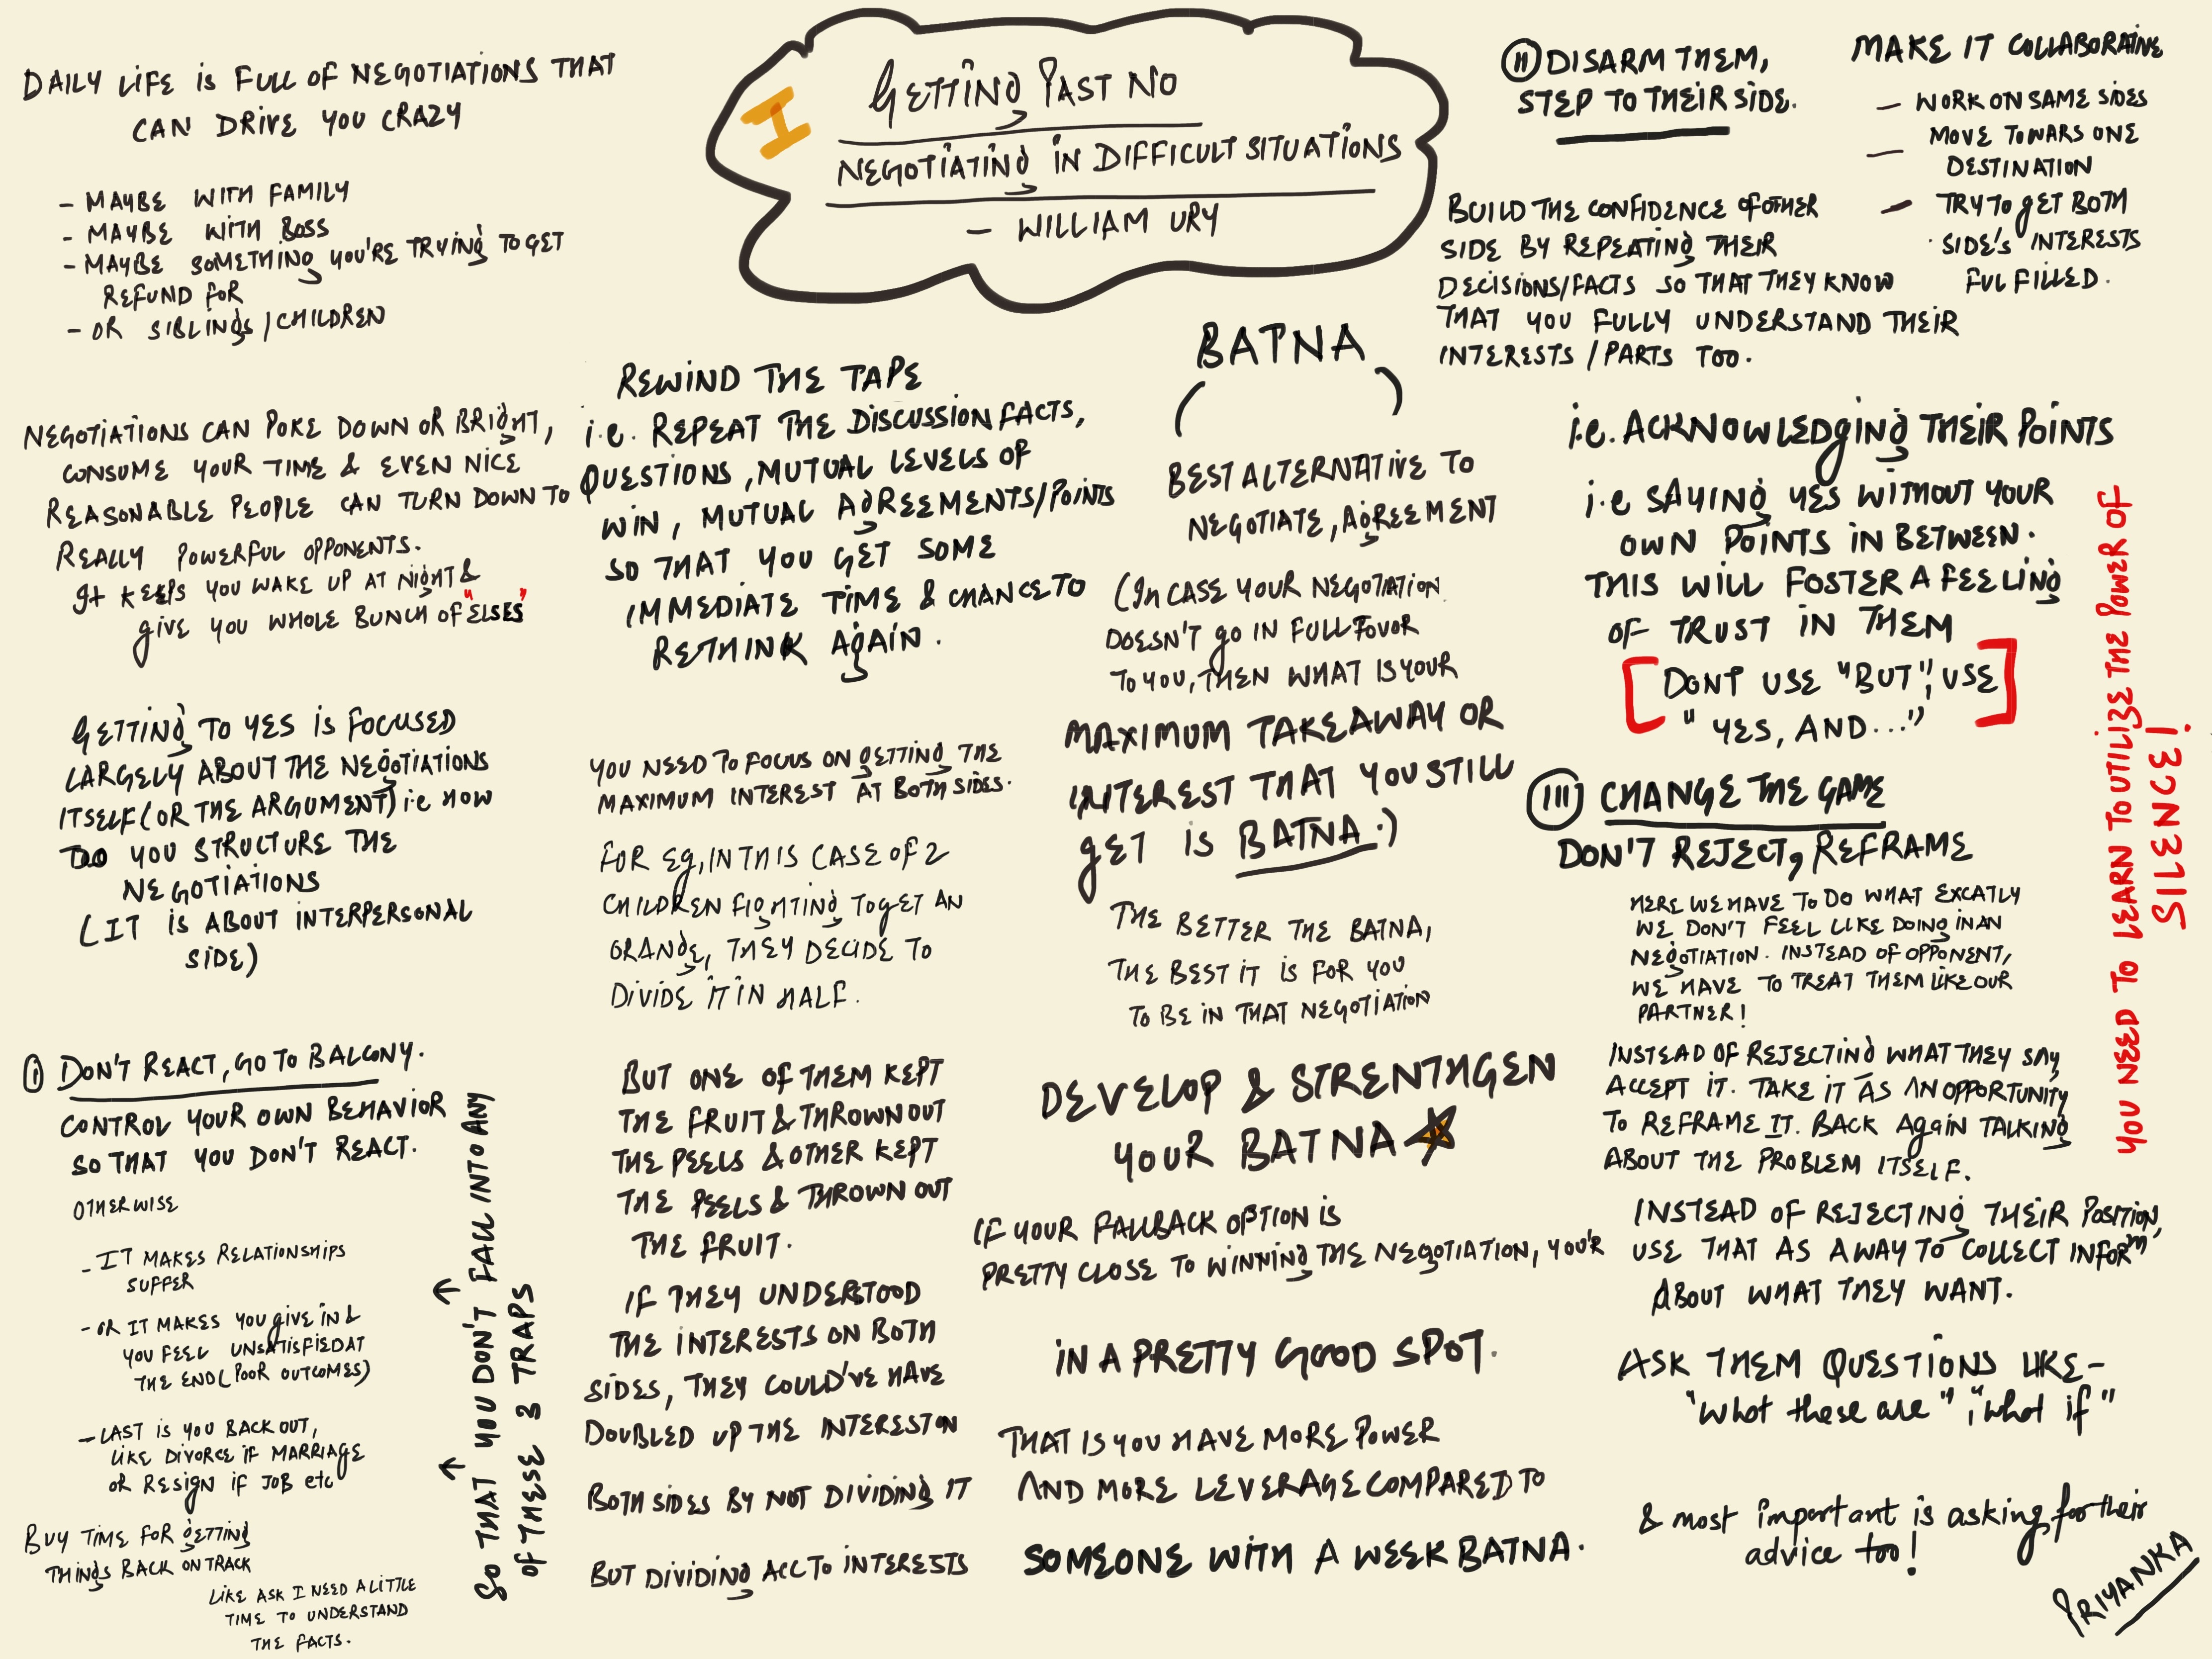 I
GETTING PAST NO
NEGOTIATING IN DIFFICULT SITUATIONS
- WILLIAM URY
DAILY LIFE IS FULL OF NEGOTIATIONS THAT
CAN DRIVE YOU CRAZY
- MAYBE WITH FAMILY
- MAYBE WITH BOSS
- MAYBE SOMETHING YOU'RE TRYING TO GET
REFUND FOR
- OR SIBLINGS / CHILDREN
NEGOTIATIONS CAN POKE DOWN OR BRIGHT,
CONSUME YOUR TIME & EVEN NICE
REASONABLE PEOPLE CAN TURN DOWN TO
REALLY POWERFUL OPPONENTS.
It KEEPS YOU WAKE UP AT NIGHT &
GIVE YOU WHOLE BUNCH OF "ELSES"
GETTING TO YES IS FOCUSED
LARGELY ABOUT THE NEGOTIATIONS
ITSELF (OR THE ARGUMENT) i.e HOW
YOU STRUCTURE THE
NEGOTIATIONS
( IT IS ABOUT INTERPERSONAL
SIDE)
(I) DON'T REACT, GO TO BALCONY.
CONTROL YOUR OWN BEHAVIOR
SO THAT YOU DON'T REACT.
OTHERWISE
- IT MAKES RELATIONSHIPS
SUFFER
- OR IT MAKES YOU GIVE IN &
YOU FEEL UNSATISFIED AT
THE END (POOR OUTCOMES)
- LAST IS YOU BACK OUT,
LIKE DIVORCE IF MARRIAGE
OR RESIGN IF JOB etc
BUY TIME FOR GETTING
THINGS BACK ON TRACK
LIKE ASK I NEED A LITTLE
TIME TO UNDERSTAND
THE FACTS.
SO THAT YOU DON'T FALL INTO ANY
OF THESE 3 TRAPS
REWIND THE TAPE
i.e. REPEAT THE DISCUSSION FACTS,
QUESTIONS, MUTUAL LEVELS OF
WIN, MUTUAL AGREEMENTS/POINTS
SO THAT YOU GET SOME
IMMEDIATE TIME & CHANCE TO
RETHINK AGAIN.
YOU NEED TO FOCUS ON GETTING THE
MAXIMUM INTEREST AT BOTH SIDES.
FOR EG, IN THIS CASE OF 2
CHILDREN FIGHTING TO GET AN
ORANGE, THEY DECIDE TO
DIVIDE IT IN HALF.
BUT ONE OF THEM KEPT
THE FRUIT & THROWN OUT
THE PEELS & OTHER KEPT
THE PEELS & THROWN OUT
THE FRUIT.
IF THEY UNDERSTOOD
THE INTERESTS ON BOTH
SIDES, THEY COULD'VE HAVE
DOUBLED UP THE INTEREST ON
BOTH SIDES BY NOT DIVIDING IT
BUT DIVIDING ACC TO INTERESTS
BATNA
( )
BEST ALTERNATIVE TO
NEGOTIATE, AGREEMENT
(IN CASE YOUR NEGOTIATION
DOESN'T GO IN FULL FOVOR
TO YOU, THEN WHAT IS YOUR
MAXIMUM TAKEAWAY OR
INTEREST THAT YOU STILL
GET IS BATNA.)
THE BETTER THE BATNA,
THE BEST IT IS FOR YOU
TO BE IN THAT NEGOTIATION
DEVELOP & STRENTHGEN
YOUR BATNA
IF YOUR FALLBACK OPTION IS
PRETTY CLOSE TO WINNING THE NEGOTIATION, YOU'R
IN A PRETTY GOOD SPOT.
THAT IS YOU HAVE MORE POWER
AND MORE LEVERAGE COMPARED TO
SOMEONE WITH A WEEK BATNA.
(II) DISARM THEM,
STEP TO THEIR SIDE.
MAKE IT COLLABORATINE
- WORK ON SAME SIDES
- MOVE TOWARS ONE
DESTINATION
- TRY TO GET BOTH
SIDE'S INTERESTS
FULFILLED.
BUILD THE CONFIDENCE OF OTHER
SIDE BY REPEATING THEIR
DECISIONS/FACTS SO THAT THEY KNOW
THAT YOU FULLY UNDERSTAND THEIR
INTERESTS / PARTS TOO.
i.e. ACKNOWLEDGING THEIR POINTS
i.e SAYING YES WITHOUT YOUR
OWN POINTS IN BETWEEN.
THIS WILL FOSTER A FEELING
OF TRUST IN THEM
[DONT USE "BUT", USE
"YES, AND..."]
(III) CHANGE THE GAME
DON'T REJECT, REFRAME
HERE WE HAVE TO DO WHAT EXCATLY
WE DON'T FEEL LIKE DOING IN AN
NEGOTIATION. INSTEAD OF OPPONENT,
WE HAVE TO TREAT THEM LIKE OUR
PARTNER!
INSTEAD OF REJECTING WHAT THEY SAY,
ACCEPT IT. TAKE IT AS AN OPPORTUNITY
TO REFRAME IT. BACK AGAIN TALKING
ABOUT THE PROBLEM ITSELF.
INSTEAD OF REJECTING THEIR POSITION,
USE THAT AS A WAY TO COLLECT INFORMn
ABOUT WHAT THEY WANT.
ASK THEM QUESTIONS LIKE -
"What these are" ; "what if"
& most important is asking for their
advice too!
YOU NEED TO LEARN TO UTILIZE THE POWER OF
SILENCE!
PRIYANKA